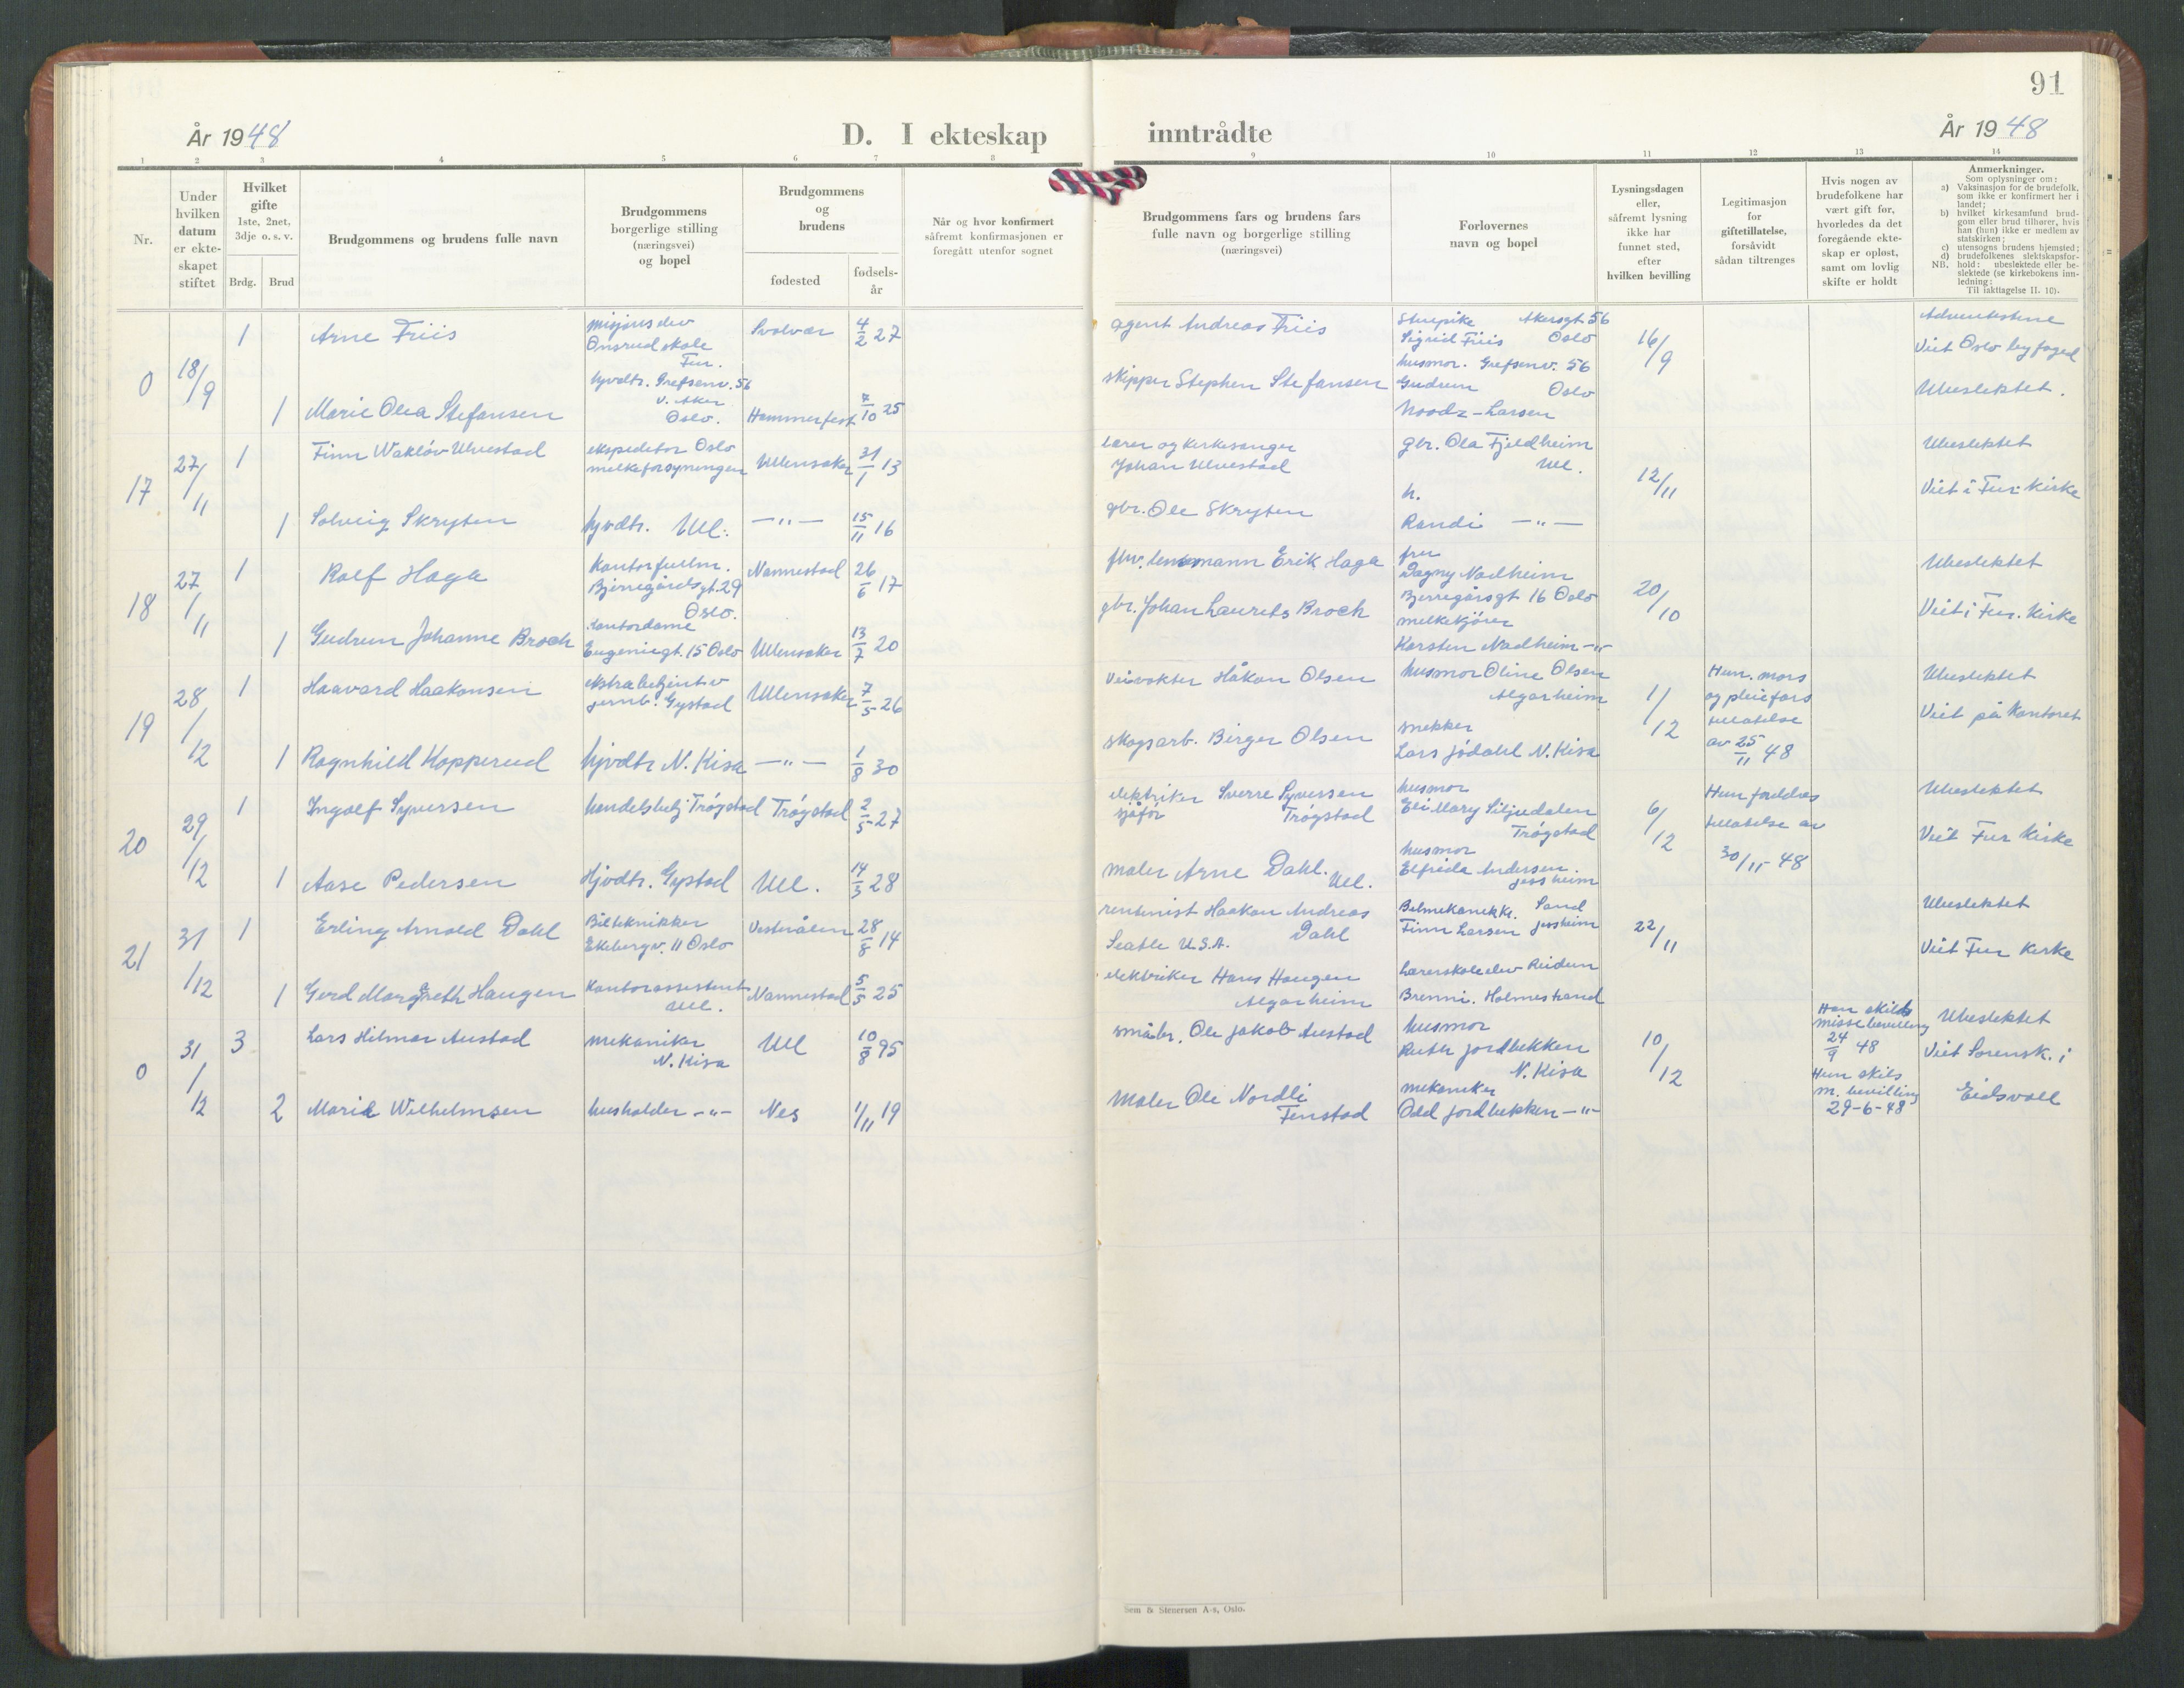 91
År 1948
D. I ekteskap inntrådte
År 1948
1 2 3 4 5 6 7 8 9 10 11 12 13 14
Nr.
Under hvilken datum er ekteskapet stiftet
Hvilket gifte
1ste, 2net, 3dje o. s. v.
Brdg. Brud
Brudgommens og brudens fulle navn
Brudgommens borgerlige stilling (næringsvei) og bopel
Brudgommens og brudens
fødested
fødsels-år
Når og hvor konfirmert
såfremt konfirmasjonen er
foregått utenfor sognet
Brudgommens fars og brudens fars
fulle navn og borgerlige stilling
(næringsvei)
Forlovernes
navn og bopel
Lysningsdagen
eller,
såfremt lysning
ikke har
funnet sted,
efter
hvilken bevilling
Legitimasjon
for
giftetillatelse,
forsåvidt
sådan tiltrenges
Hvis nogen av
brudefolkene har
vært gift før,
hvorledes da det
foregående ekte-
skap er opløst,
samt om lovlig
skifte er holdt
Anmerkninger.
Som oplysninger om:
a) Vaksinasjon for de brudefolk,
som ikke er konfirmert her i
landet;
b) hvilket kirkesamfund brud-
gom eller brud tilhører, hvis
han (hun) ikke er medlem av
statskirken;
c) utensogns brudens hjemsted;
d) brudefolkenes slektskapsfor-
NB. hold: ubeslektede eller be-
slektede (se kirkebokens inn-
ledning:
Til iakttagelse II. 10).
0 18/9 1 Arne Friis
misjonselev
Onsrud skole
Fur.
Svolvær 4/2 27
agent Andreas Friis
Akersgt 56
Sigrid Friis Oslo
16/9
Adventistene
Viet Oslo byfoged
1 Marie Olea Stefansen
hjvdtr. Grefsenv. 56
v. Aker
Oslo.
Hammerfest 7/10 25
skipper Stephen Stefansen
husmor. Grefsenv. 56
Gudrun Oslo
Noodz-Larsen
Ubeslektet.
17 27/11 1 Finn Wakløv Ulvestad
ekspeditør Oslo
melkeforsyningen
Ullensaker 31/1 13
lærer og kirkesanger
Johan Ulvestad
gbr. Ola Fjeldheim
Ull.
12/11
Ubeslektet
Viet i Fur Kirke
1 Solveig Skryten
hjvdtr. Ull.
—"— 15/11 16
gbr. Ole Skryten
h.
Randi —"—
18 27/11 1 Rolf Haga
Kontorfullm.
Bjerregårdsgt. 29
Oslo.
Nannestad 26/6 17
fhv. lensmann Erik Haga
fru
Dagny Nadheim
Bjerregårsgt 16 Oslo
20/10
Ubeslektet
Viet i Fur. Kirke
1 Gudrun Johanne Broch
Kontordame
Eugeniegt. 15 Oslo
Ullensaker 13/7 20
gbr. Johan Laurits Broch
melkekjører
Karsten Nadheim —"—
19 28/12 1 Haavard Haakonsen
ekstrabetjent v
jernb. Gystad
Ullensaker 7/5 26
Veivokter Håkon Olsen
husmor Oline Olsen
Algarheim
1/12
Hun. mors
og pleiefars
tillatelse
av 25/11 48
Ubeslektet
Viet på Kontoret
1 Ragnhild Kopperud
hjvdtr N. Kisa
—"— 1/8 30
skogsarb. Birger Olsen
snekker
Lars Jódahl N. Kisa
20 29/12 1 Ingolf Syversen
handelsbetj Trøgstad
Trøgstad 2/5 27
elektriker Sverre Syversen
sjåfør Trøgstad
husmor
Eli Mary Siljudalen
Trøgstad
6/12
Hun foreldres
tillatelse av
30/11-48
Ubeslektet
Viet Fur Kirke
1 Aase Pedersen
Hjvdtr. Gystad
Ull. 14/3 28
maler Arne Dahl.
Ull.
husmor
Elfrida Andersen.
Jessheim
21 31/12 1 Erling Arnold Dahl
Biltekniker
Ekebergv. 11 Oslo
Vesterålen 28/8 14
rentenist Haakon Andreas
Seatle U.S.A. Dahl
Bilmekanikk. Sand
Finn Larsen Jessheim
22/11
Ubeslektet
Viet Fur Kirke
1 Gerd Margreth Haugen
Kontorassistent
Ull.
Nannestad 5/5 25
elektriker Hans Haugen
Algarheim
Lærerskoleelev Reidun
Brenni. Holmestrand
0 31/12 3 Lars Hilmar Austad
mekaniker
N. Kisa
Ull 10/8 95
småbr. Ole Jakob Austad
husmor
Ruth Jordbekken
N. Kisa
10/12
Han skilt
misse bevilling
24/9 48
Ubeslektet
Viet Sorensk. i
Eidsvoll
2 Marie Wilhelmsen
husholder —"—
Nes 1/11 19
Maler Ole Nordli
Fenstad
mekaniker
Odd Jordbekken —"—
Hun skils
m. bevilling
29-6-48
Sem & Stenersen A-s, Oslo.